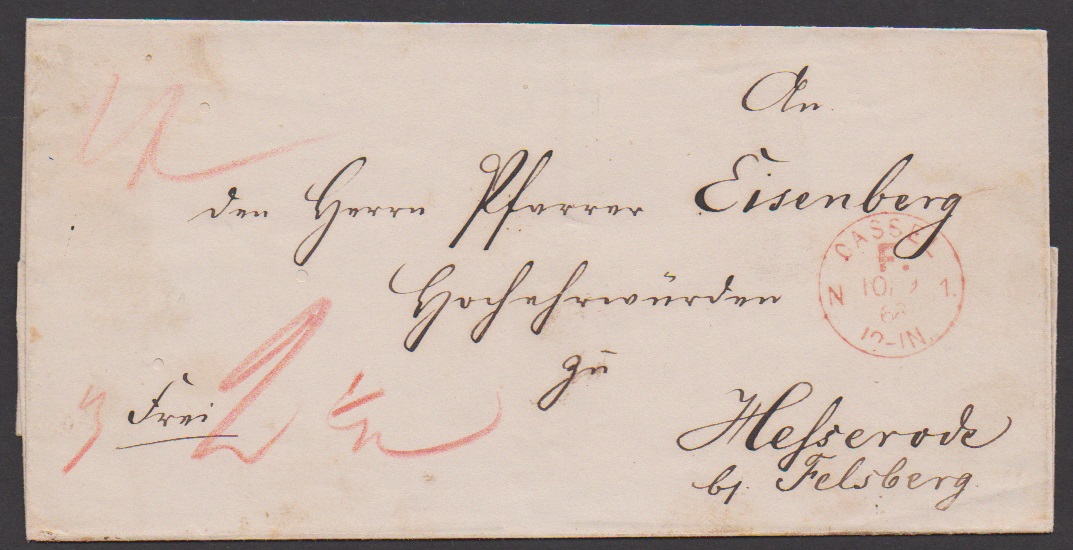 An
den Herrn Pfarrer Eisenberg
Hochehrwürden
zu
Hesserode
bj. Felsberg
Frei
2 1/2
CASSEL
F.
N 1.
12-1N.